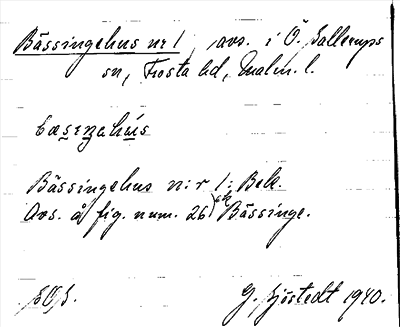 Bässingehus nr 1, avs. i Ö. Sallerups
sn, Frosta hd, Malm. l.
Bässingehus n:r 1: Bek.
Avs. å fig. num. 26) Bässinge.
G. Sjöstedt 1940.